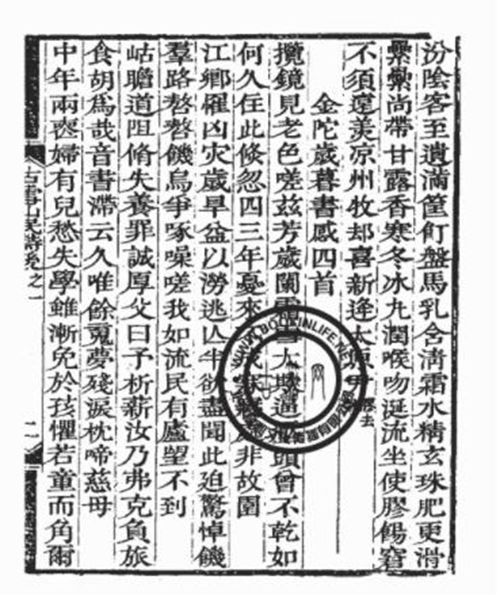 汾陰客至遺滿筐飣盤馬乳含清霜水精玄珠肥更滑
纍纍尚帶甘露香寒冬冰九潤喉吻涎流坐使膠餳窘
不須遠羡凉州牧却喜新逢太原
金陀歲暮書感四首
攬鏡見老色嗟茲芳歲闌大逼頭曾不乾如
何久住此倐忽四三年憂來非故園
江鄉罹凶灾歲旱益以澇逃亾半欲盡聞此迫驚悼饑
羣路嗸嗸饑烏爭啄噪嗟我如流民有廬望不到
岵瞻道阻脩失養罪誠厚父曰予析薪汝乃弗克負旅
食胡爲哉音書滯云久唯餘夢殘淚枕啼慈母
中年兩喪婦有兒愁失學雖漸免於孩懼若童而角爾
古雪山民詩後之一
二